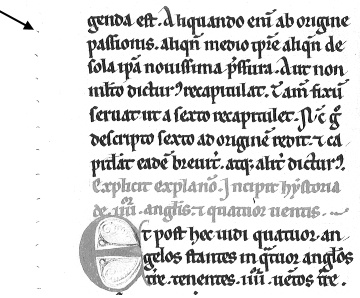 genda est. Aliquando enī ab origine
passionis. aliqn̄ medio tp̄ie aliqn̄ de
sola ip̄a nouissima p̄ssura. Aut non
dictur᛫ recapitulat. tam̄ fixū
seruat ut a sexto recapitulet. Nc̄ ḡ
descripto sexto ad originē redit. ⁊ ca
pitl̄at eadē breuit᛫. atq; alit᛫ dictur᛫.
Explicit explanō. Incipit hystoria
de .iiii. anglis. ⁊ quatuor uentis.
Et post hec uidi quatuor an
gelos stantes in q̄tuor anglos
tr̄e. tenentes .iiii. uētos tr̄e.